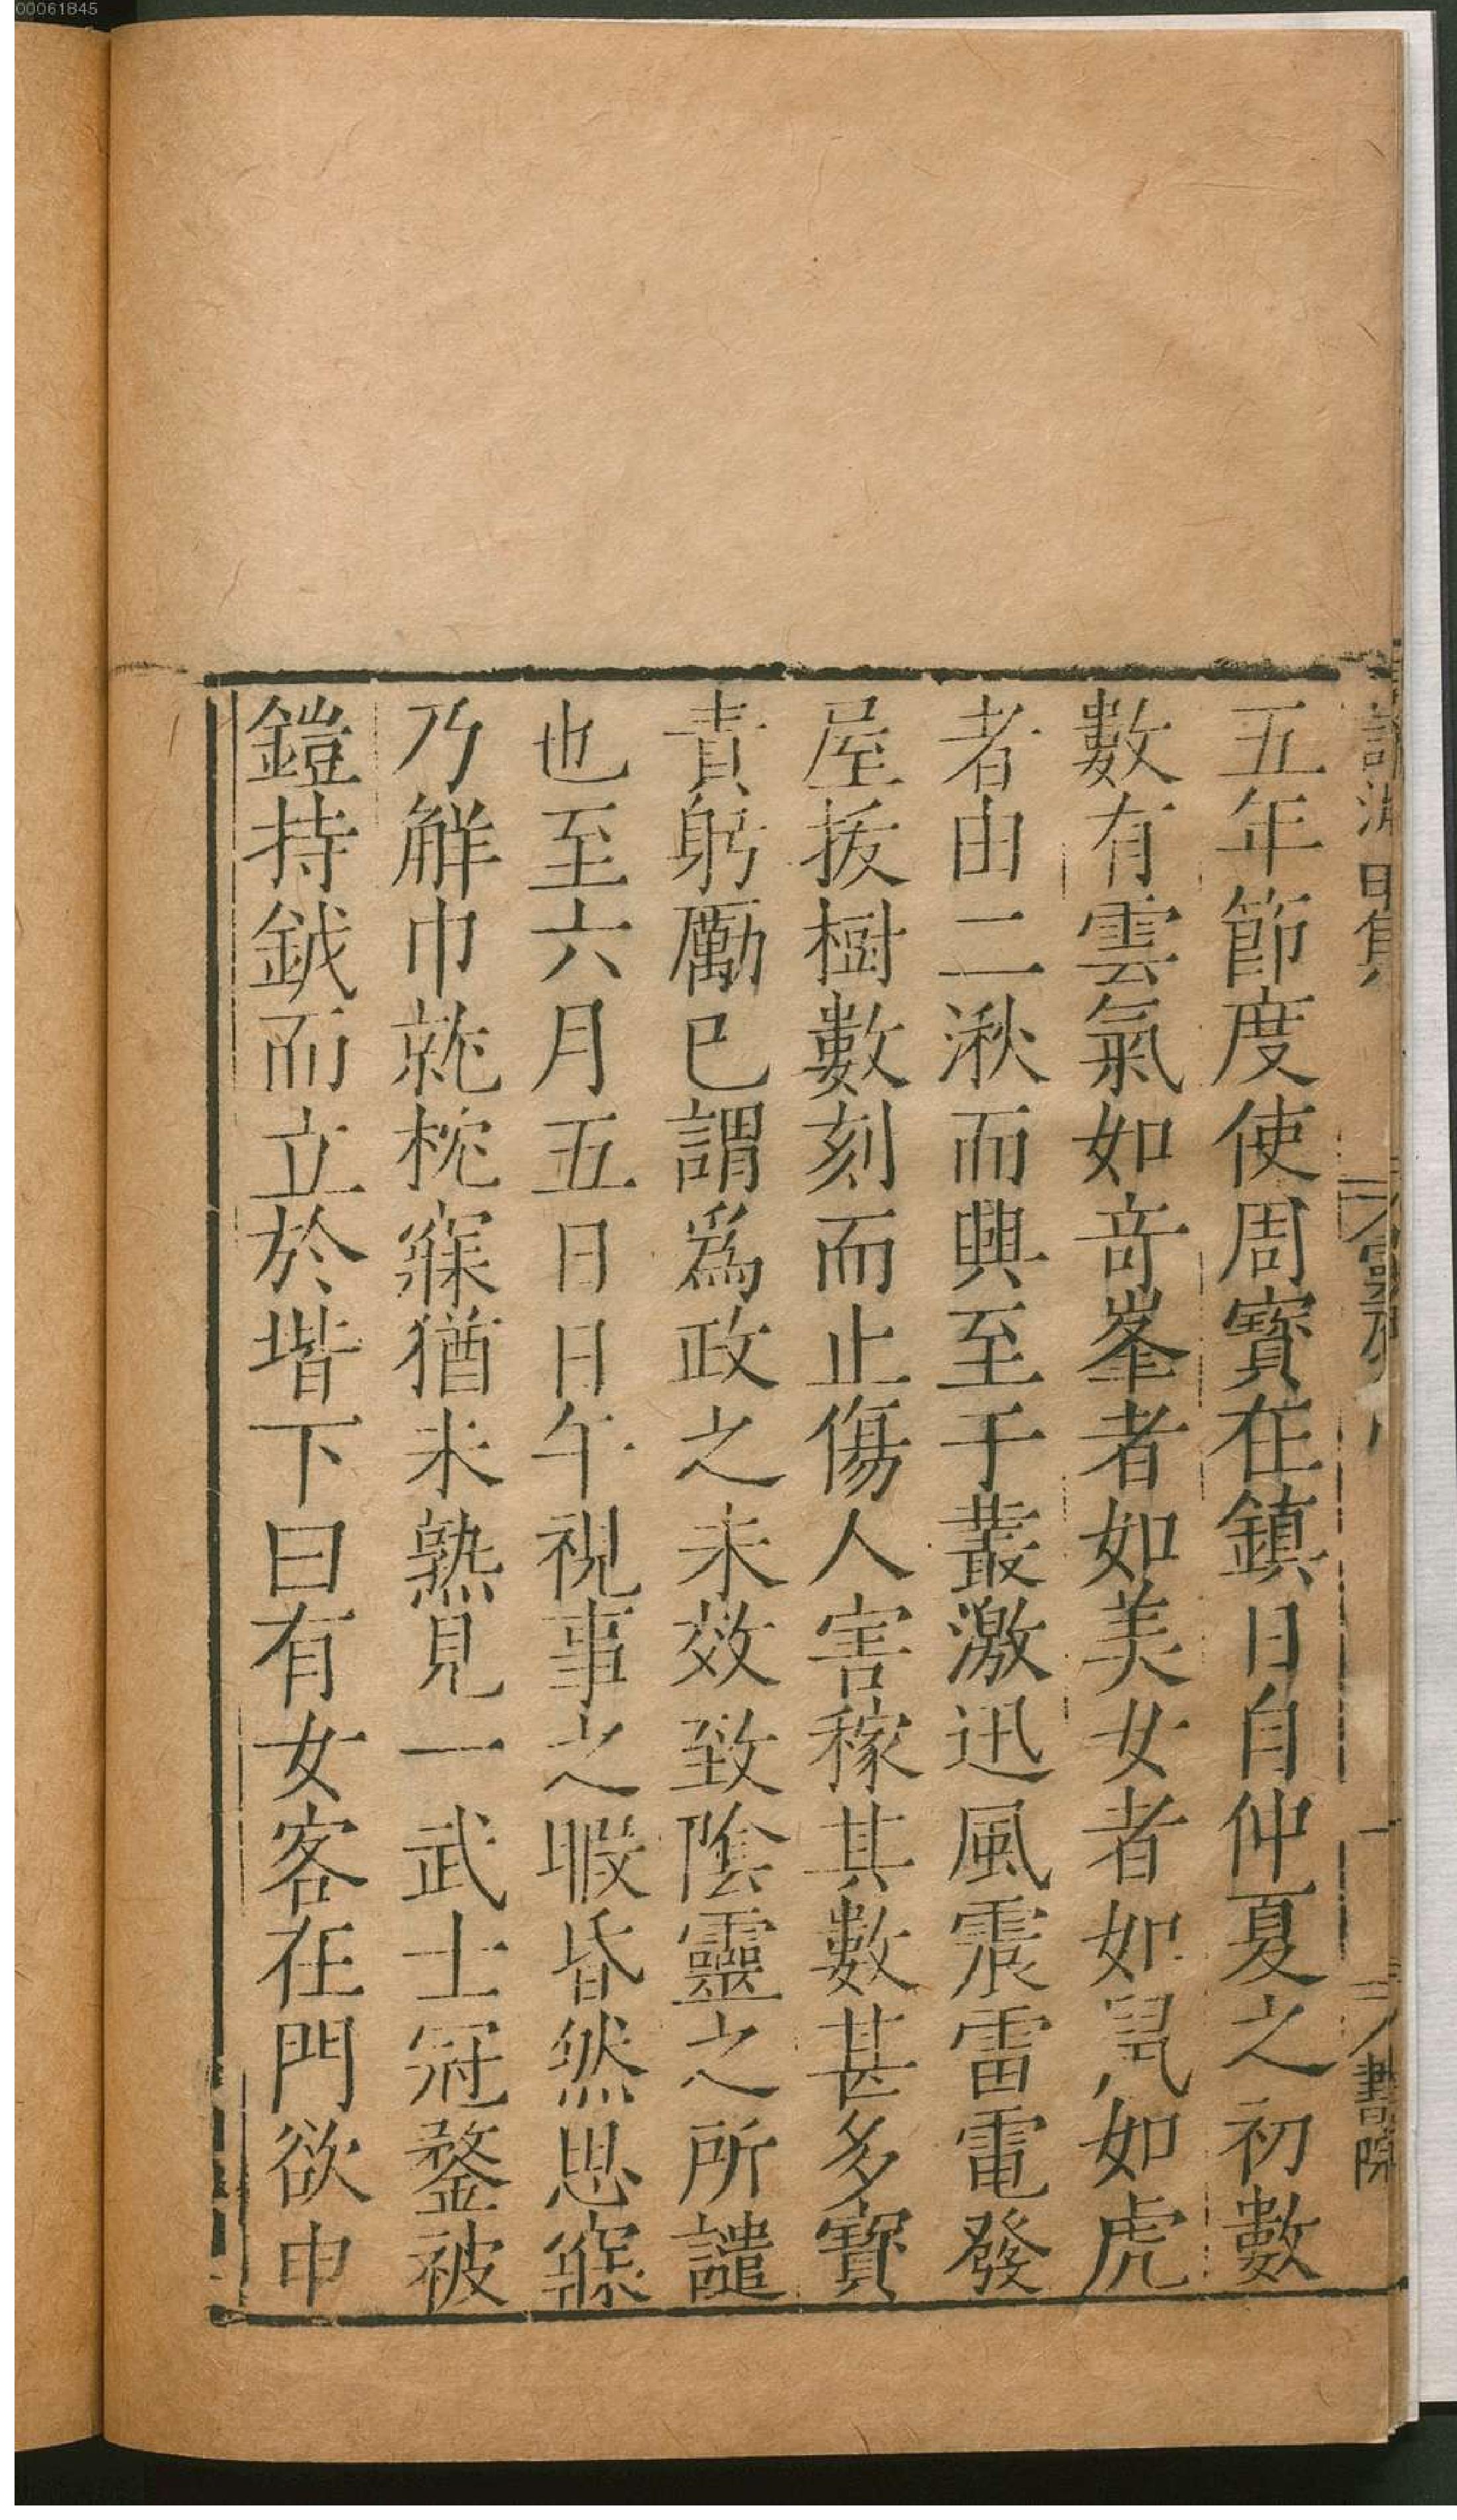 00061845
五年節度使周寳在鎮日自仲夏之初數
數有雲氣如竒峯者如美女者如鼠如虎
者由二湫而興至于叢激迅風震雷電發
屋拔樹數刻而止傷人害稼其數甚多寳
責躬勵已謂爲政之未效致隂靈之所譴
也至六月五日日午視事之暇昏然思寐
乃解巾就枕寐猶未熟見一武士冠鍪被
鎧持鉞而立於堦下曰有女客在門欲申
書院